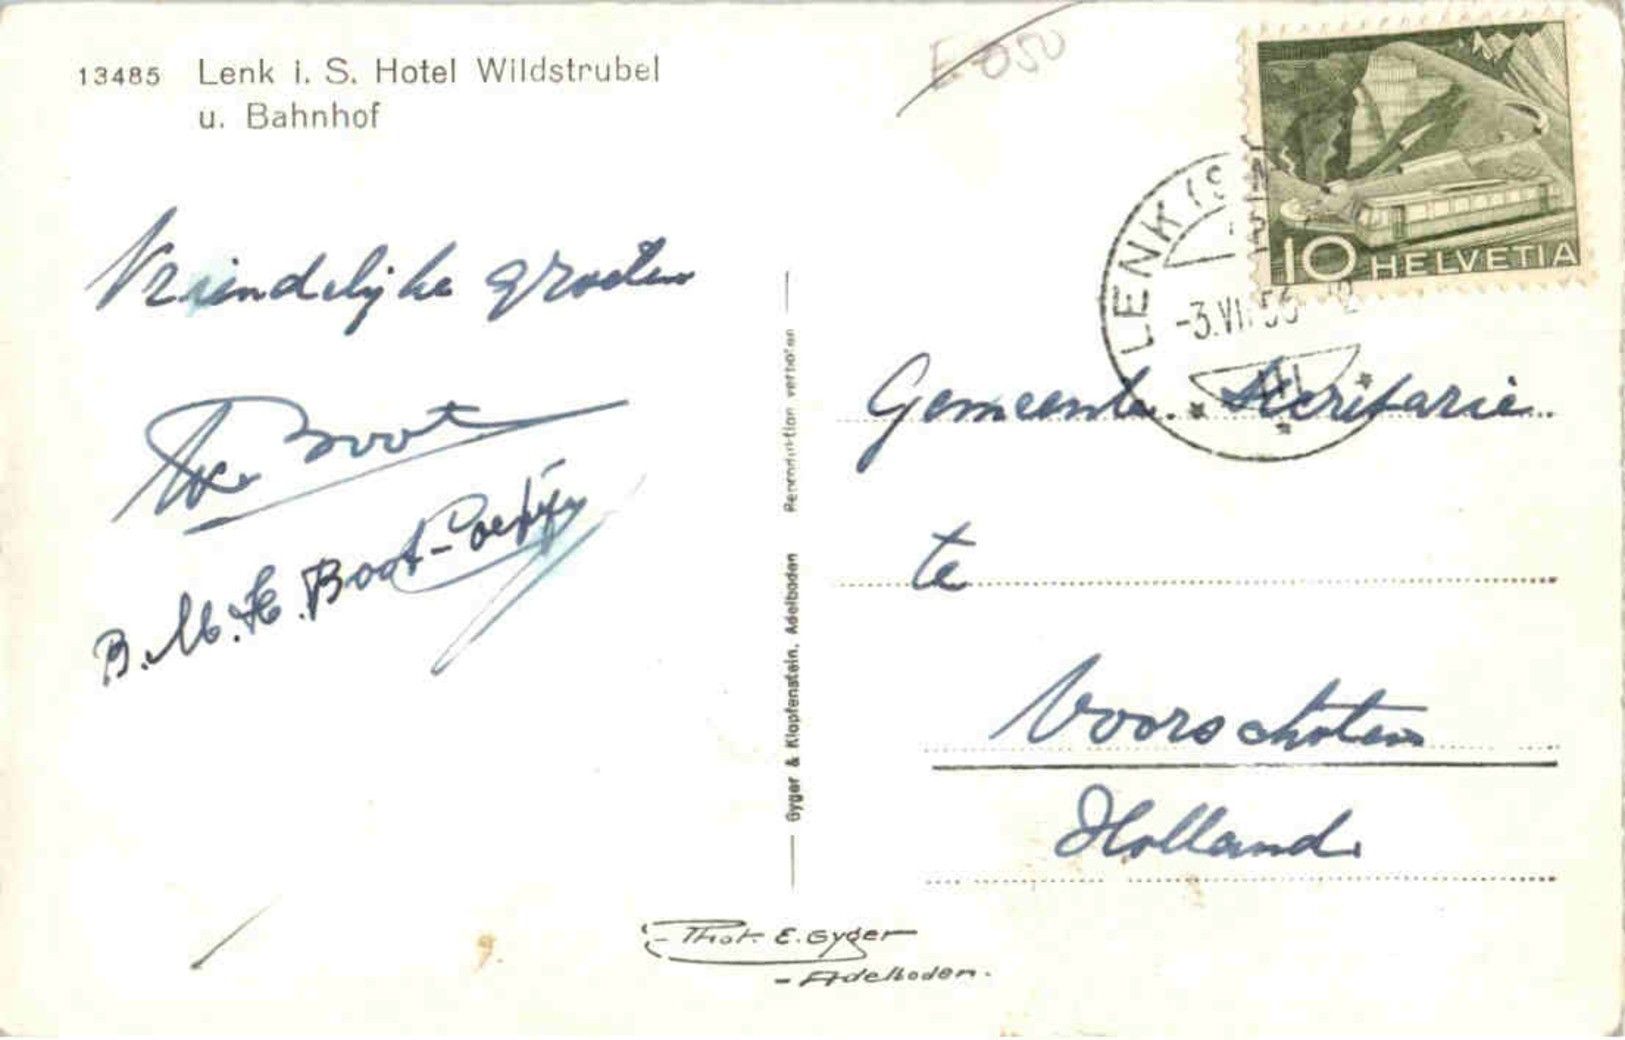 13485 Lenk i. S. Hotel Wildstrubel
u. Bahnhof
Vriendelijke groeten
Boot
B. M. H. Boot-
Reproduktion verboten
Gyger & Klopfenstein, Adelboden
LENK (S
-3.VII 12
10 HELVETIA
Gemeente Secretarie
te
Voorschoten
Holland.
Phot. E. Gyger
- Adelboden.